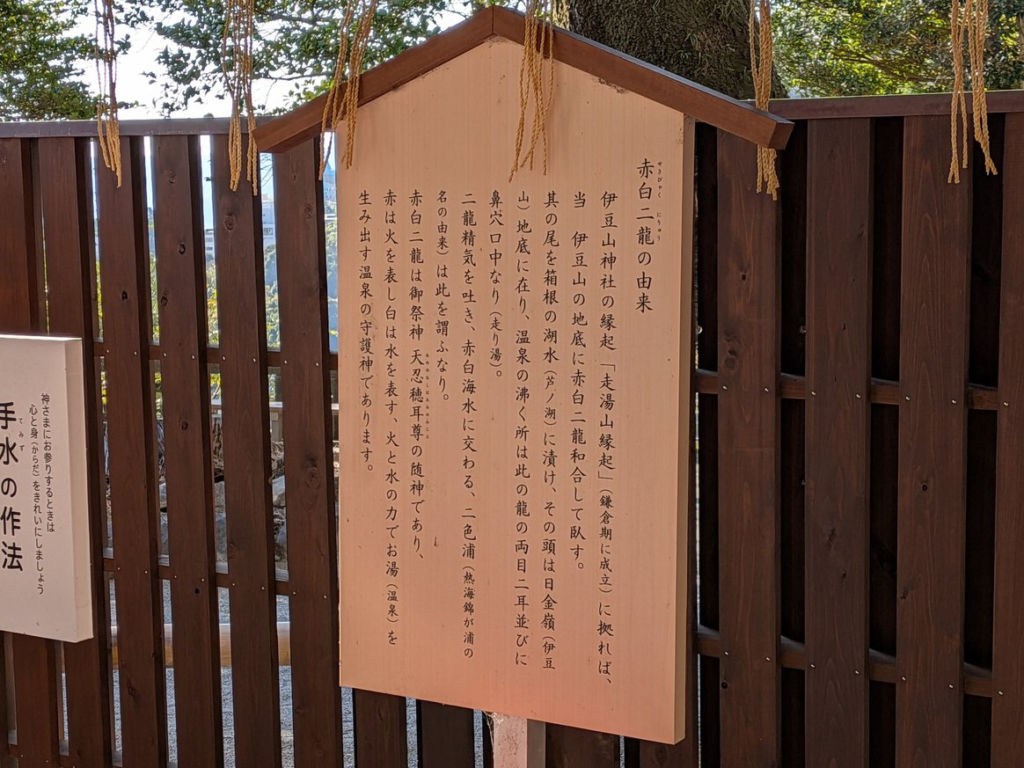 赤白二龍の由来
せきびゃく にりゅう
伊豆山神社の縁起「走湯山縁起」（鎌倉期に成立）に拠れば、
当 伊豆山の地底に赤白二龍和合して臥す。
其の尾を箱根の湖水（芦ノ湖）に漬け、その頭は日金嶺（伊豆
山）地底に在り、温泉の沸く所は此の龍の両目二耳並びに
鼻穴口中なり（走り湯）。
二龍精気を吐き、赤白海水に交わる、二色浦（熱海錦が浦の
名の由来）は此を謂ふなり。
赤白二龍は御祭神 天忍穂耳尊の随神であり、
赤は火を表し白は水を表す、火と水の力でお湯（温泉）を
生み出す温泉の守護神であります。
神さまにお参りするときは
心と身（からだ）をきれいにしましょう
手水の作法
てみず